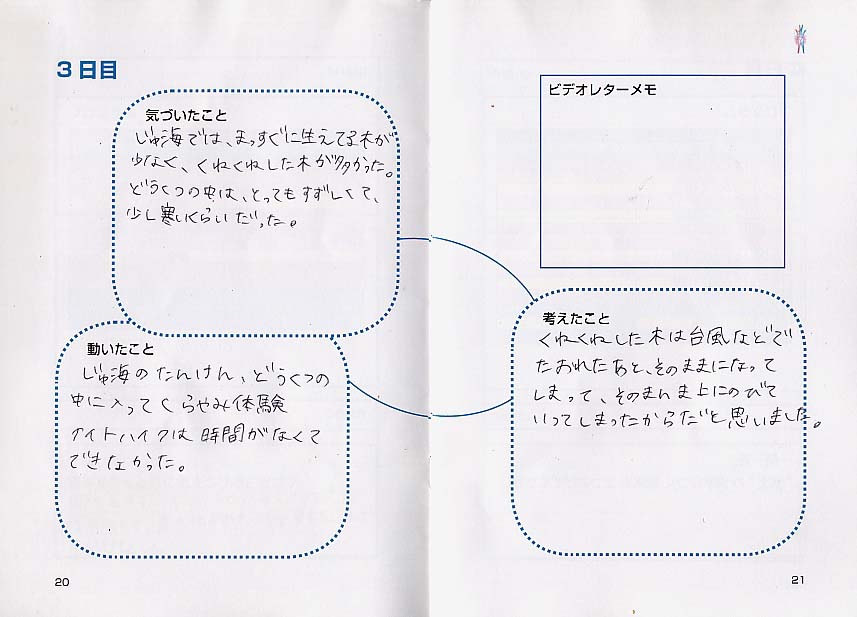 3日目
気づいたこと
じゅ海では、まっすぐに生えてる木が
少なく、くねくねした木が多かった。
どうくつの中は、とってもすずしくて、
少し寒いくらいだった。
動いたこと
じゅ海のたんけん、どうくつの
中に入ってくらやみ体験
ナイトハイクは時間がなくて
できなかった。
20
ビデオレターメモ
考えたこと
くねくねした木は台風などで
たおれたあと、そのままになって
しまって、そのまんま上にのびて
いってしまったからだと思いました。
21